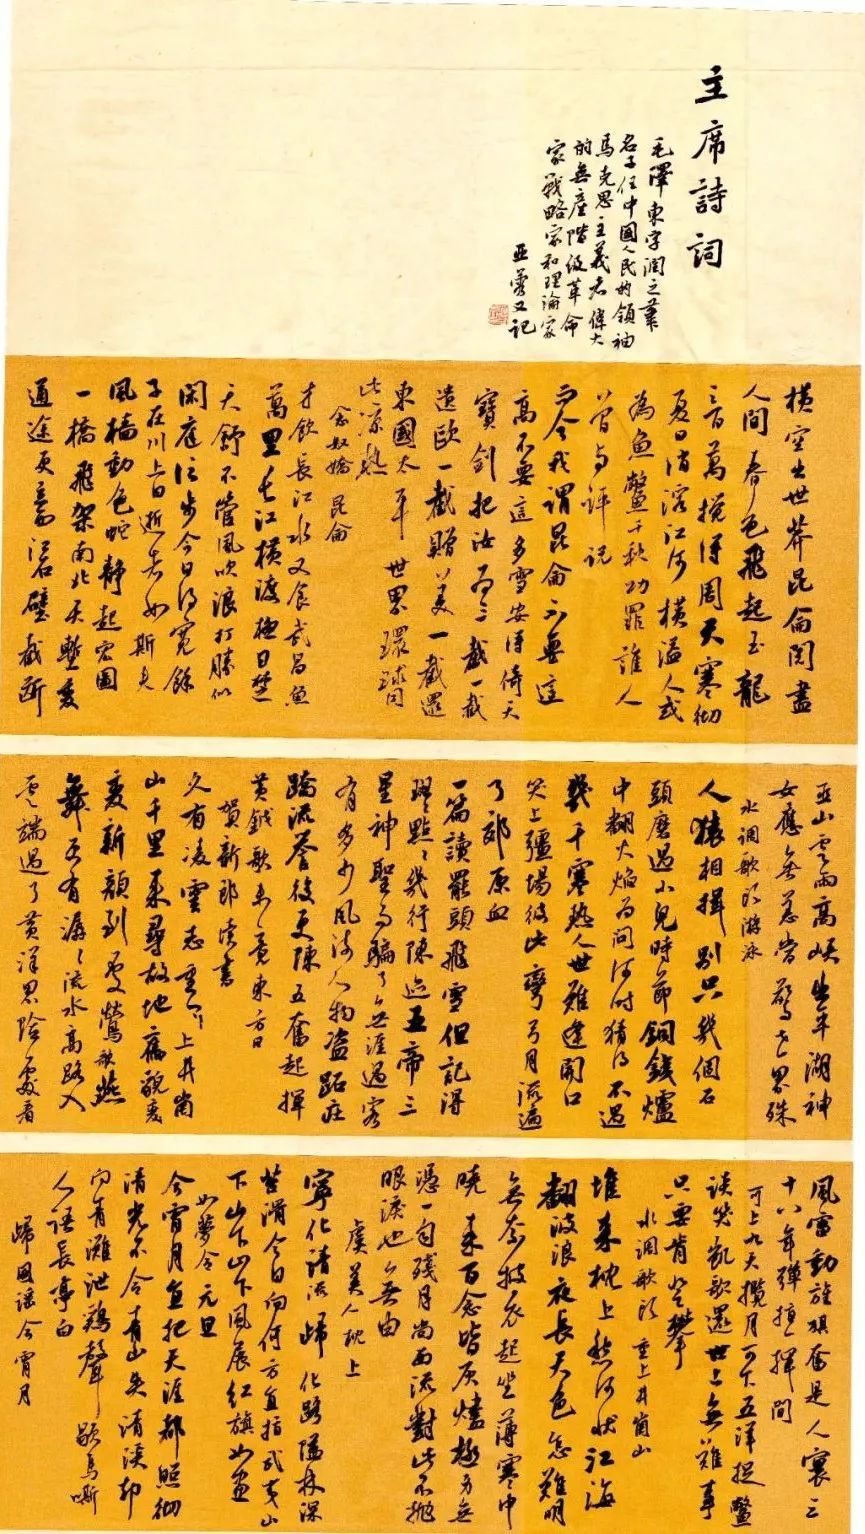 主席詩詞
毛澤東字潤之筆
名子任中國人民的領袖
馬克思主義者偉大
的無產階級革命
家戰略家和理論家
亞 又記
橫空出世莽昆侖閱盡
人間春色飛起玉龍
三百萬攪得周天寒徹
夏日消溶江河橫溢人或
為魚鱉千秋功罪誰人
曾與評說
而今我謂昆侖不要這
高不要這多雪安得倚天
寶劍把汝而三截一截
遺歐一截贈美一截還
東國太平世界環球同
此涼熱
念奴嬌昆侖
才飲長江水又食武昌魚
萬里長江橫渡極目楚
天舒不管風吹浪打勝似
閑庭信步今日得寬餘
子在川上曰逝者如斯夫
風檣動龜蛇靜起宏圖
一橋飛架南北天塹變
通途更立西江石壁截斷
巫山雲雨高峽出平湖神
女應無恙當驚世界殊
水調歌頭游泳
人猿相揖別只幾個石
頭磨過小兒時節銅鐵爐
中翻火焰為問何時猜得不過
幾千寒熱人世難逢開口
笑上疆場彼此彎弓月流遍
了郊原血
一篇讀罷頭飛雪但記得
斑點點幾行陳迹五帝三
皇神聖事騙了無涯過客
有多少風流人物盜跖莊
蹻流譽後更陳王奮起揮
黃鉞歌未竟東方白
賀新郎讀書
久有凌雲志重上井崗
山千里來尋故地舊貌
變新顏到處鶯歌燕
舞更有潺潺流水高路入
雲端過了黃洋界險處看
風雷動旌旗奮是人寰三
十八年彈指揮間
可上九天攬月可下五洋捉鱉
談笑凱歌還世上無難事
只要肯登攀
水調歌頭重上井崗山
堆來枕上愁何狀江海
翻波浪夜長天色怎難明
無奈披衣起坐薄寒中
曉來百念皆灰燼極身無
憑一勾殘月向西流對此不拋
眼淚也無由
虞美人枕上
寧化清流歸化路隘林深
苔滑今日向何方直指武夷山
下山下山下風展紅旗如畫
如夢令元旦
今宵月直把天涯都照徹
清光不令青山失清溪卻
向青灘泄雞聲歇馬嘶
人語長亭白
歸國謠今宵月